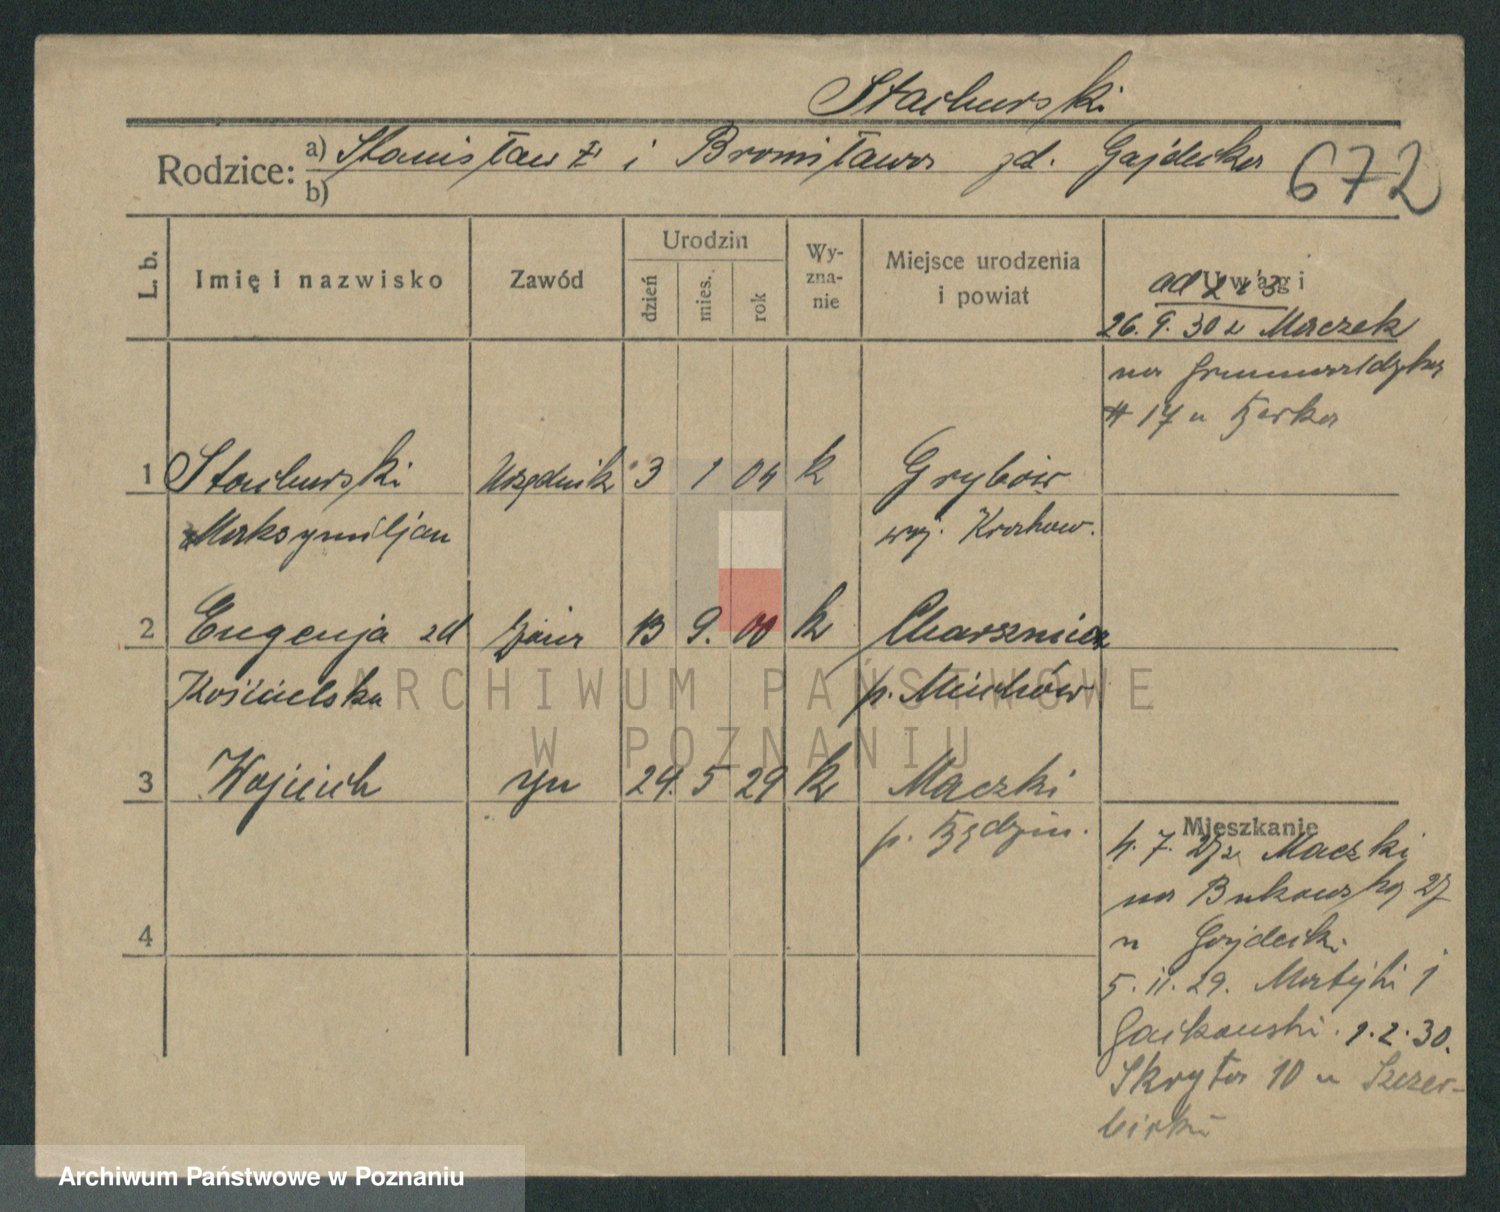 Stachurski
Rodzice: a) Stanisław i Bronisława zd. Gajdecka
b)
672
L. b. Imię i nazwisko Zawód Urodzin dzień mies. rok Wyznanie Miejsce urodzenia i powiat Uwagi
ad 2 i 3
26.9.30 z Maczek
na Grunwaldzką
17 u
1 Stachurski Urzędnik 3 1 04 k Grybów
Maksymiljan woj. Krakow.
2 Eugenja zd żona 13 9. 00 k Charsznica
Kościelska p. Miechów
3 Wojciech syn 24. 5 29 k Maczki
p. Będzin.
4
Mieszkanie
4. 7. 29 z Maczki
na Bukowską 27
u Gajdecki
5. 11. 29. Matejki 1
1. 2. 30.
Skryta 10 u Szczer-
ARCHIWUM PAŃSTWOWE
W POZNANIU
Archiwum Państwowe w Poznaniu